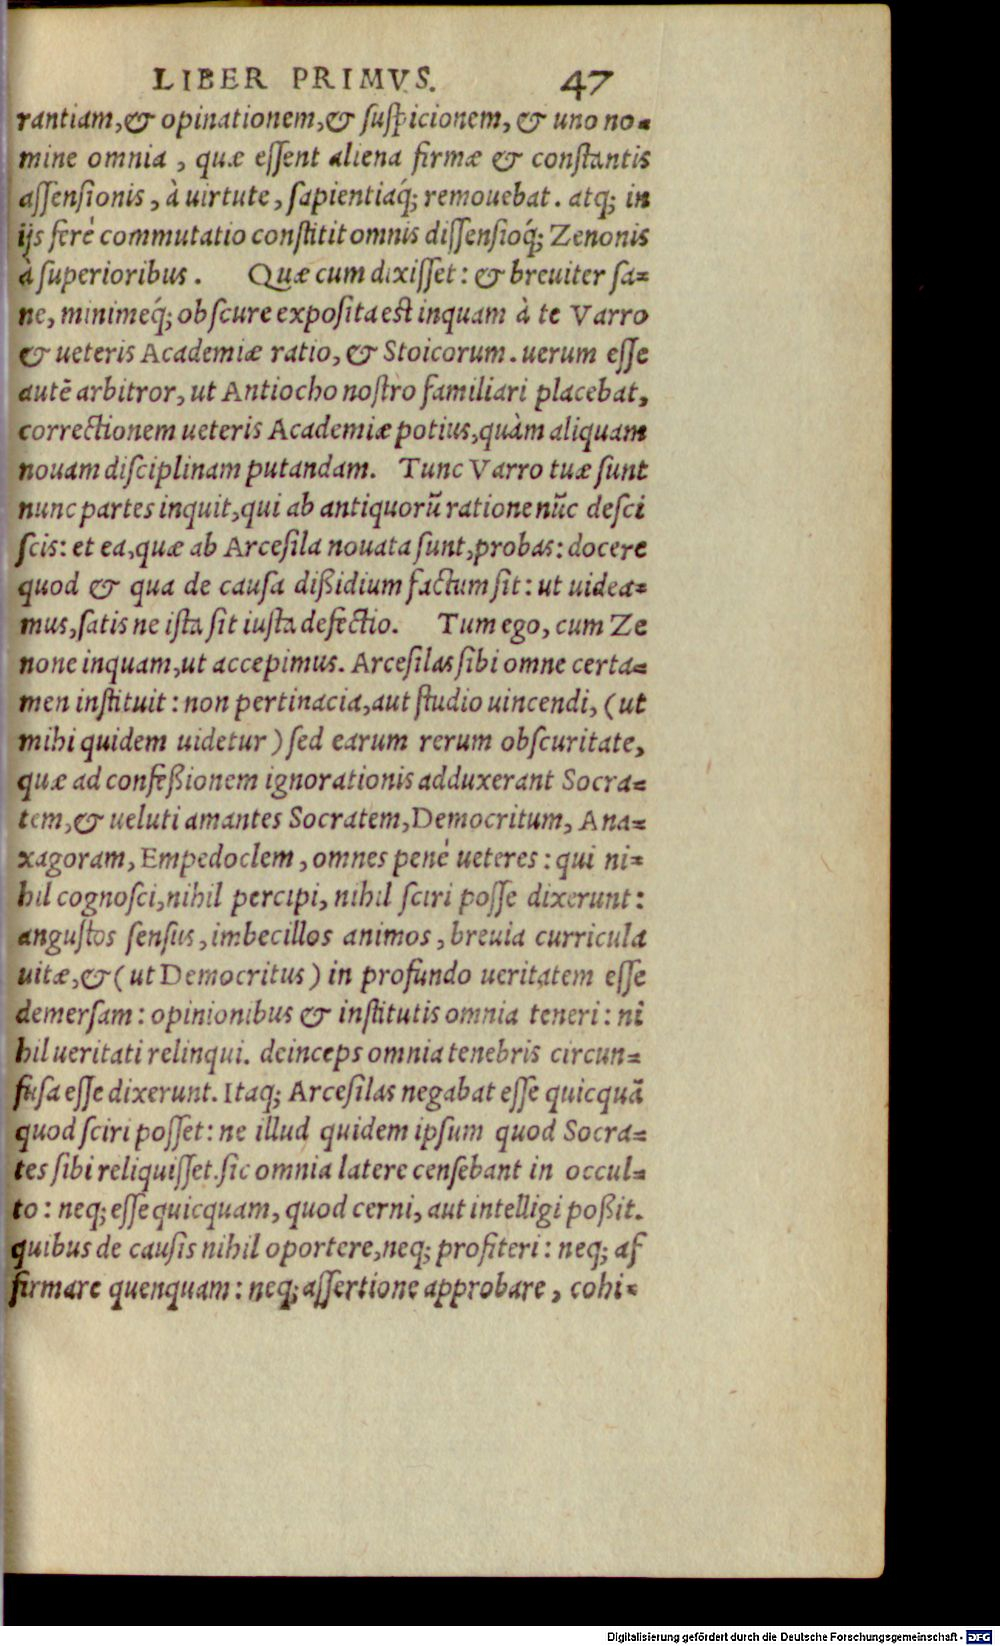 LIBER PRIMVS. 47
rantiam,& opinationem,& suspicionem, & uno no-
mine omnia , quæ essent aliena firmæ & constantis
assensionis , à uirtute , sapientiaq́; remouebat . atq; in
ijs ferè commutatio constitit omnis dissensioq́; Zenonis
à superioribus . Quæ cum dixisset : & breuiter sa-
ne, minimeq́; obscure exposita est inquam à te Varro
& ueteris Academiæ ratio, & Stoicorum . uerum esse
autē arbitror, ut Antiocho nostro familiari placebat,
correctionem ueteris Academiæ potius,quàm aliquam
nouam disciplinam putandam. Tunc Varro tuæ sunt
nunc partes inquit,qui ab antiquorū ratione nūc desci
scis: et ea,quæ ab Arcesila nouata sunt,probas: docere
quod & qua de causa dißidium factum sit : ut uidea-
mus,satis ne ista sit iusta defectio. Tum ego, cum Ze
none inquam,ut accepimus. Arcesilas sibi omne certa-
men instituit : non pertinacia,aut studio uincendi, (ut
mihi quidem uidetur ) sed earum rerum obscuritate,
quæ ad confeßionem ignorationis adduxerant Socra-
tem,& ueluti amantes Socratem,Democritum, Ana-
xagoram, Empedoclem , omnes penè ueteres : qui ni-
hil cognosci,nihil percipi, nihil sciri posse dixerunt :
angustos sensus , imbecillos animos , breuia curricula
uitæ,& ( ut Democritus ) in profundo ueritatem esse
demersam : opinionibus & institutis omnia teneri : ni
hil ueritati relinqui. deinceps omnia tenebris circun-
fusa esse dixerunt. Itaq; Arcesilas negabat esse quicquā
quod sciri posset : ne illud quidem ipsum quod Socra-
tes sibi reliquisset.sic omnia latere censebant in occul-
to : neq; esse quicquam, quod cerni, aut intelligi poßit.
quibus de causis nihil oportere,neq; profiteri : neq; af
firmare quenquam : neq; assertione approbare , cohi-
Digitalisierung gefördert durch die Deutsche Forschungsgemeinschaft - DFG